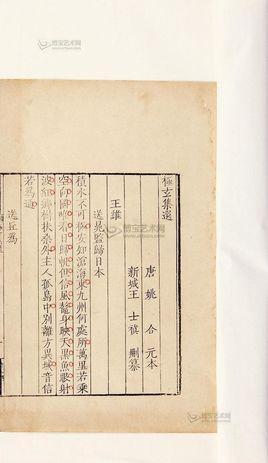 極玄集選
唐姚合元本
新城王士禛刪纂
王維
送晁監歸日本
積水不可極安知滄海東九州何處所萬里若乘
空向國唯看日歸帆但信風鰲身映天黑魚眼射
波紅鄉樹扶桑外主人孤島中別離方異域音信
若爲通
送丘爲
博宝艺术网
博宝艺术网
博宝艺术网